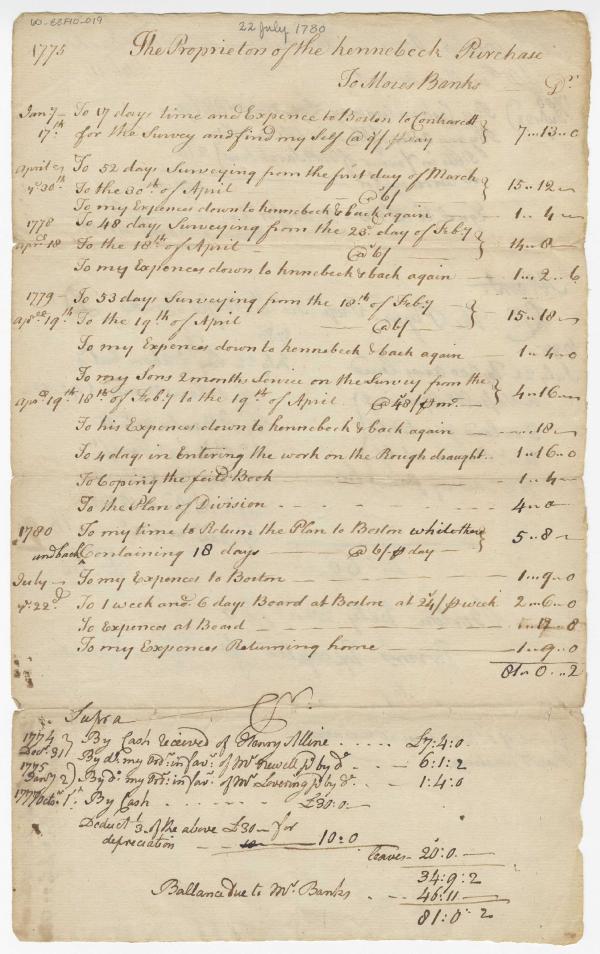 W-EEHO-019
22 July 1780
1775 The Proprietors of the Kennebeck Purchase
To Moses Banks Dr.
Jany 17th To 17 days time and Expence to Boston to Contract for the Survey and find my Self @ 9/ ⅌ day 7..13..0
April ye 30th To 52 days Surveying from the first day of March
To the 30th of April @ 6/ 15..12..
To my Expences down to kennebeck & back again 1..4..
1778 To 48 days Surveying from the 23d day of Feby
aprl 18 To the 18th of April @ 6/ 14..8..
To my Expences down to kennebeck & back again 1..2..6
1779 To 53 days Surveying from the 18th of Feby
aprl 19th To the 19th of April @ 6/ 15..18..
To my Expences down to kennebeck & back again 1..4..0
To my Sons 2 months Service on the Survey from the
aprl 19th 18th of Feby to the 19th of April @ 48/ ⅌ mo. 4..16..
To his Expences down to kennebeck & back again ..18..
To 4 days in Entering the work on the Rough draught.. 1..16..0
To Coping the feild Book 1..4..
To the Plan of Division 4..0
1780 To my time to Return the Plan to Boston while there
and back Containing 18 days @ 6/ ⅌ day 5..8
July To my Expences to Boston 1..9..0
ye 22d To 1 week and 6 days Board at Boston at 24/ ⅌ week 2..6..0
To Expences at Board 1..17..8
To my Expences Returning home 1..9..0
81..0..2
Supra Cr.
1774 Decr. 31 By Cash received of Henry Alline £7:4:0
1775 By do. my Ord: in fav. of Mr Fewell ⅌ by do. 6:1:2
Jany 2 By do. my Ord: in fav. of Mr Lovering ⅌ by do. 1:4:0
1777 Octor. 1st By Cash £30:0
Deduct 1/3 of the above £30 for
depreciation 10:0
leaves 20:0
34:9:2
Ballance due to Mr Banks 46:11
81:0:2